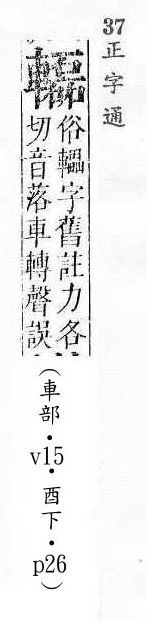 37正字通
俗字舊註力各
切音落車轉聲誤
（車部・v15・酉下・p26）